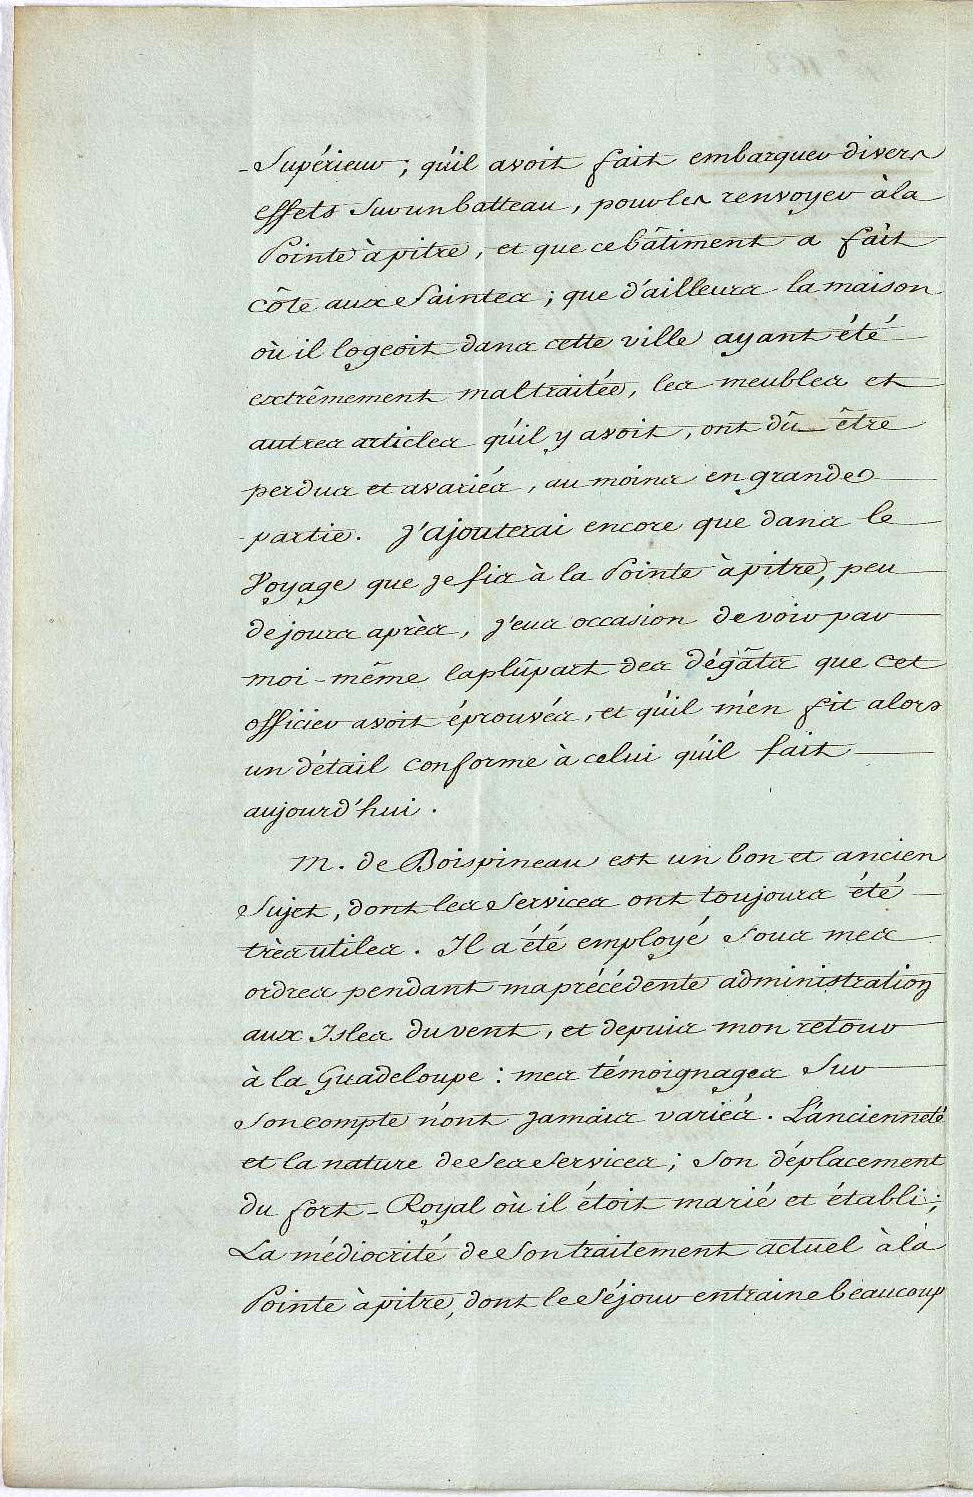 Supérieur ; qu'il avoit fait embarquer divers
effets sur un batteau, pour les renvoyer à la
Pointe à pitre, et que ce bâtiment a fait
côte aux Saintes ; que d'ailleurs la maison
où il logeoit dans cette ville ayant été
extrêmement maltraitée, les meubles et
autres articles qu'il y avoit, ont dû être
perdus et avariés, au moins en grande
partie. J'ajouterai encore que dans le
Voyage que je fis à la Pointe à pitre, peu
de jours après, j'eus occasion de voir par
moi-même la plûpart des dégâts que cet
officier avoit éprouvés, et qu'il m'en fit alors
un détail conforme à celui qu'il fait
aujourd'hui.
M. de Boispineau est un bon et ancien
Sujet, dont les services ont toujours été
très utiles. Il a été employé sous mes
ordres pendant ma précédente administration
aux Isles du vent, et depuis mon retour
à la Guadeloupe : mes témoignages sur
son compte n'ont jamais variés. L'ancienneté
et la nature de ses services ; son déplacement
du fort-Royal où il étoit marié et établi ;
La médiocrité de son traitement actuel à la
Pointe à pitre, dont le séjour entraine beaucoup